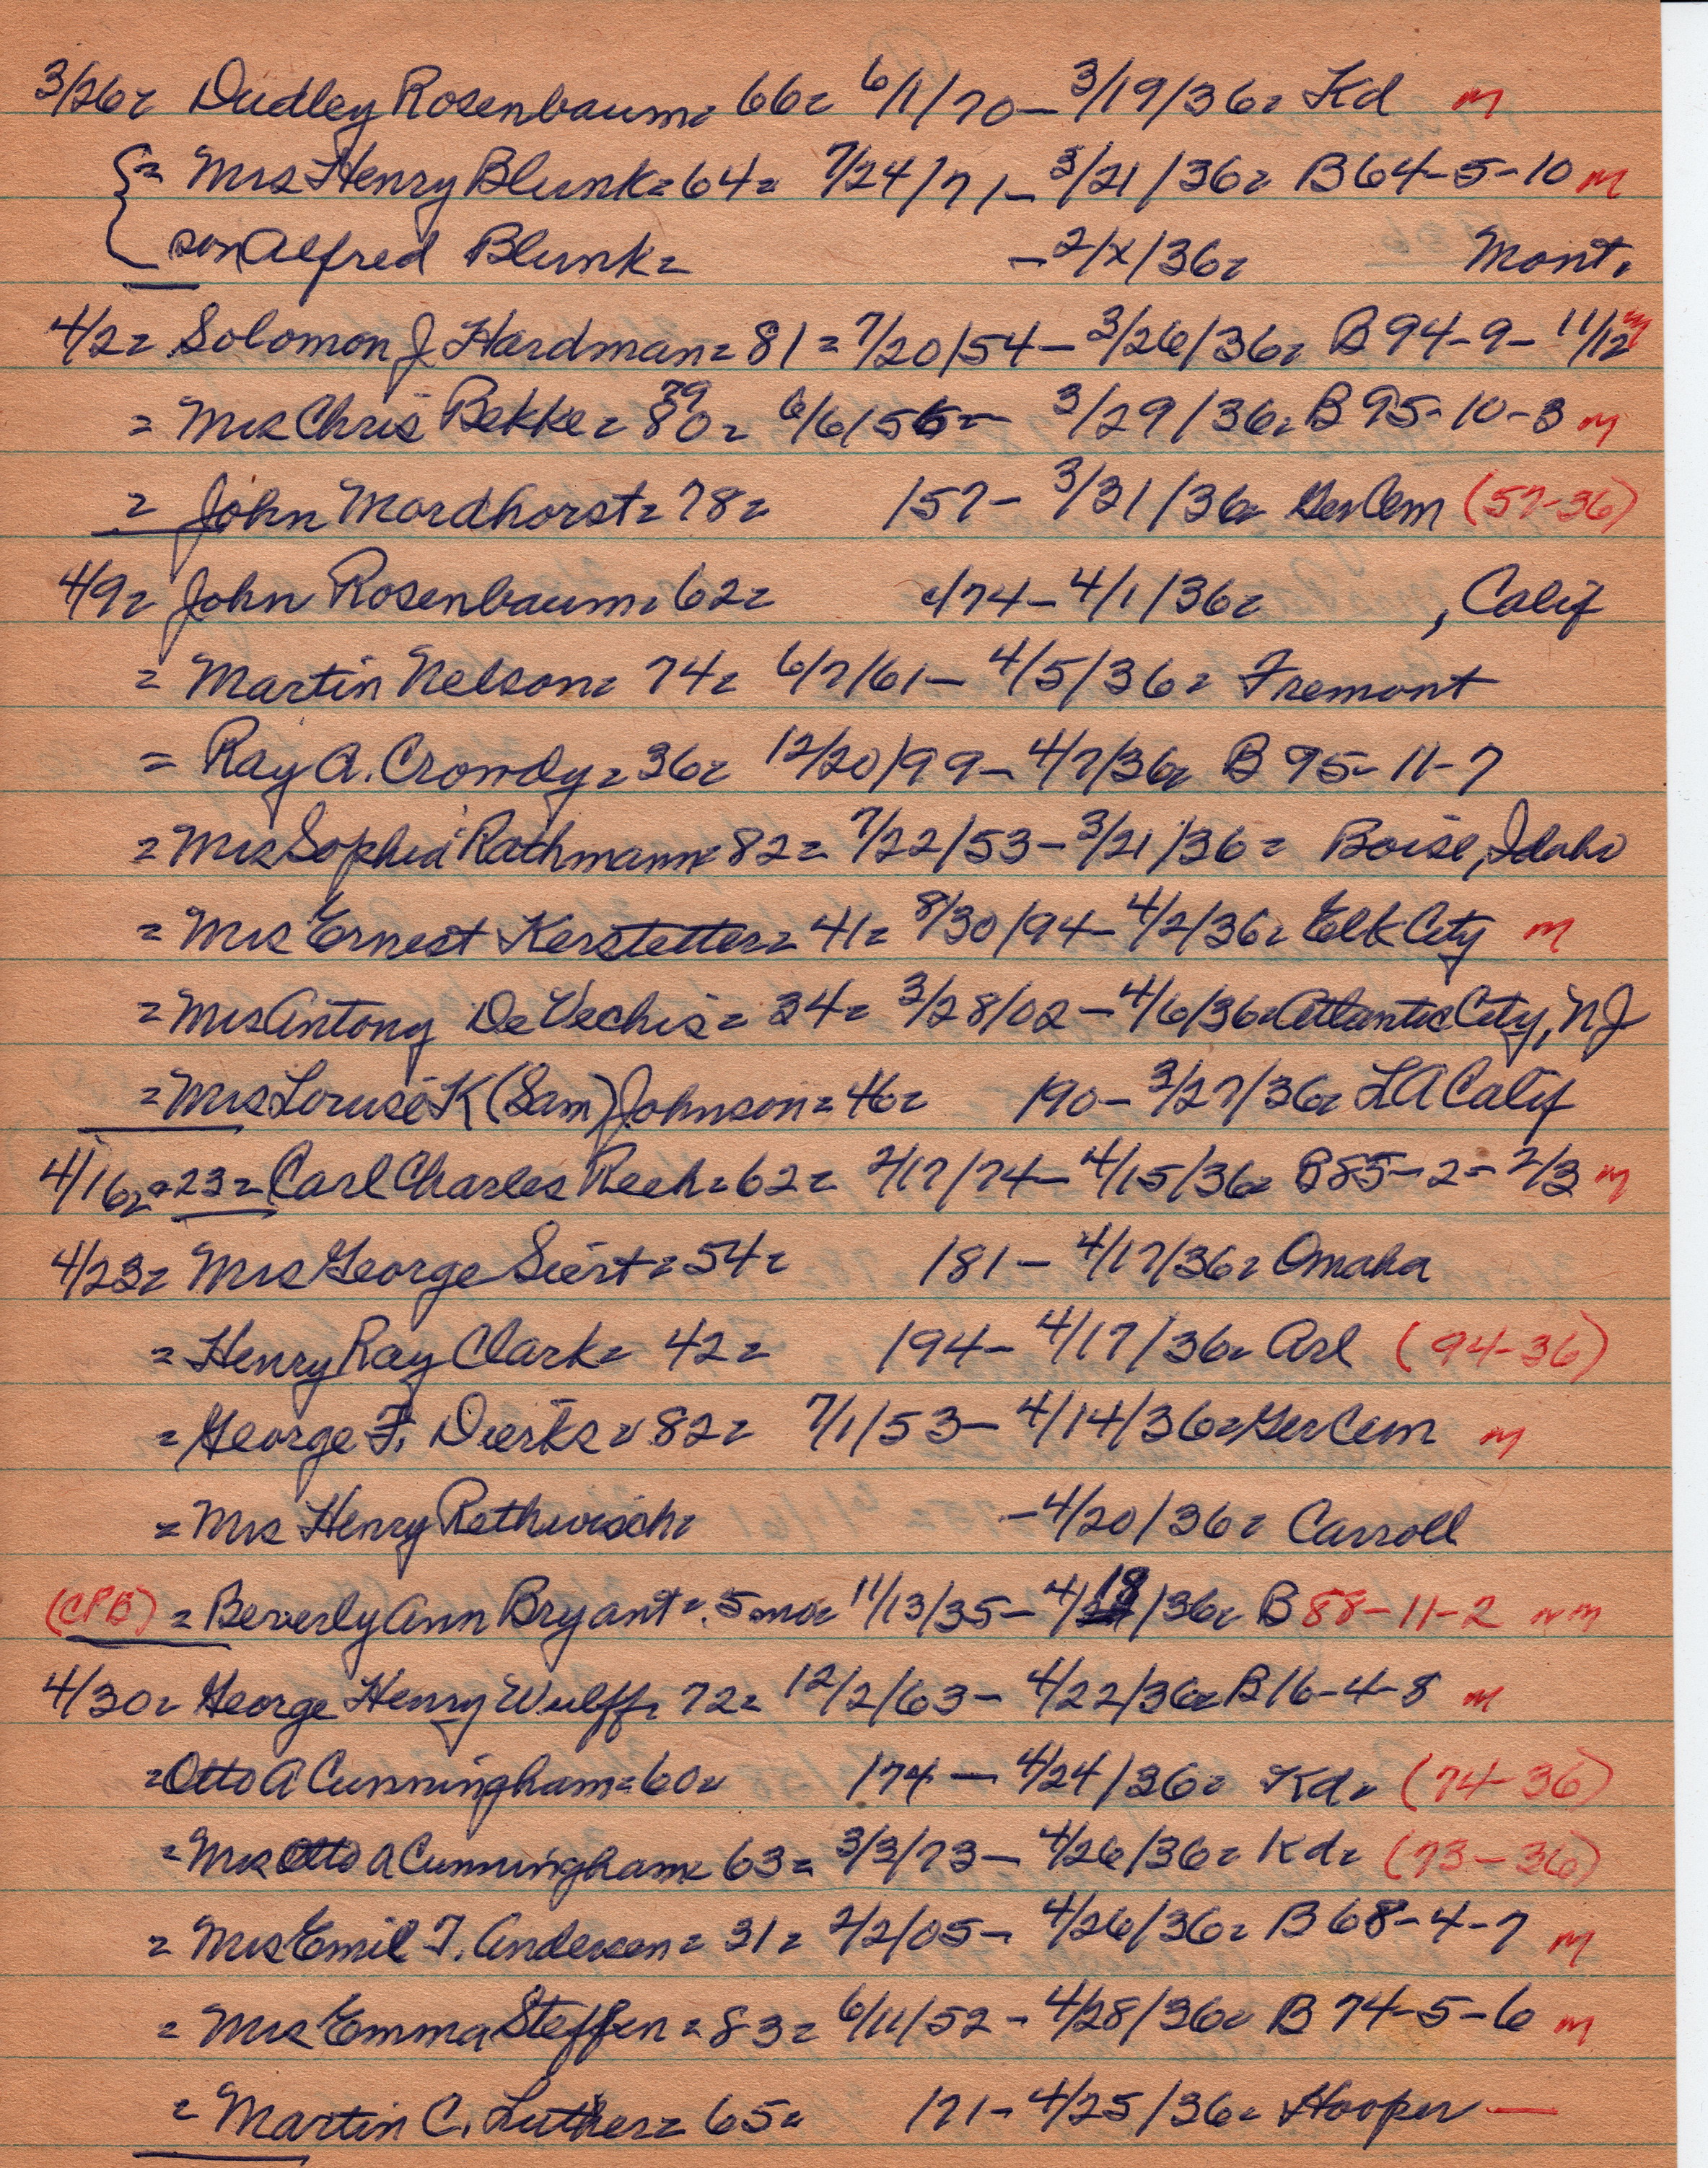 3/26= Dudley Rosenbaum= 66= 6/1/70 – 3/19/36= Kd m
{= Mrs Henry Blunk= 64= 7/24/71 – 3/21/36= B 64-5-10 m
son Alfred Blunk= – 2/x/36= Mont.
4/2= Solomon J Hardman= 81= 7/20/54 – 3/26/36= B 94-9-11/12 m
= Mrs Chris Bekke= 80= 79 6/6/56 – 3/29/36= B 95-10-3 m
= John Mordhorst= 78= /57 – 3/31/36= Ger Cem (57-36)
4/9= John Rosenbaum= 62= c/74 – 4/1/36= , Calif
= Martin Nelson= 74= 6/7/61 – 4/5/36= Fremont
= Ray A. Crowdy= 36= 12/20/99 – 4/7/36= B 95-11-7
= Mrs Sophia Rathmann= 82= 7/22/53 – 3/21/36= Boise, Idaho
= Mrs Ernest Kerstetter= 41= 8/30/94 – 4/2/36= Elk City m
= Mrs Antony DeVechis= 34= 3/28/02 – 4/6/36= Atlantic City, NJ
= Mrs Louise K (Sam) Johnson= 46= /90 – 3/27/36= LA Calif
4/16= 23= Carl Charles Reeh= 62= 2/17/74 – 4/15/36= B 85-2-2/3 m
4/23= Mrs George Siert= 54= /81 – 4/17/36= Omaha
= Henry Ray Clark= 42= /94 – 4/17/36= Arl (94-36)
= George F. Dierks= 82= 7/1/53 – 4/14/36= Ger Cem m
= Mrs Henry Rethwisch= – 4/20/36= Carroll
(CPB) = Beverly Ann Bryant= 5 mo= 11/13/35 – 4/18/36= B 88-11-2 nm
4/30= George Henry Wulff= 72= 12/2/63 – 4/22/36= B 16-4-8 m
= Otto A Cunningham= 60= /74 – 4/24/36= Kd= (74-36)
= Mrs Otto A Cunningham= 63= 3/3/73 – 4/26/36= Kd= (73-36)
= Mrs Emil T. Anderson= 31= 2/2/05 – 4/26/36= B 68-4-7 m
= Mrs Emma Steffen= 83= 6/11/52 – 4/28/36= B 74-5-6 m
= Martin C. Luther= 65= /71 – 4/25/36= Hooper –